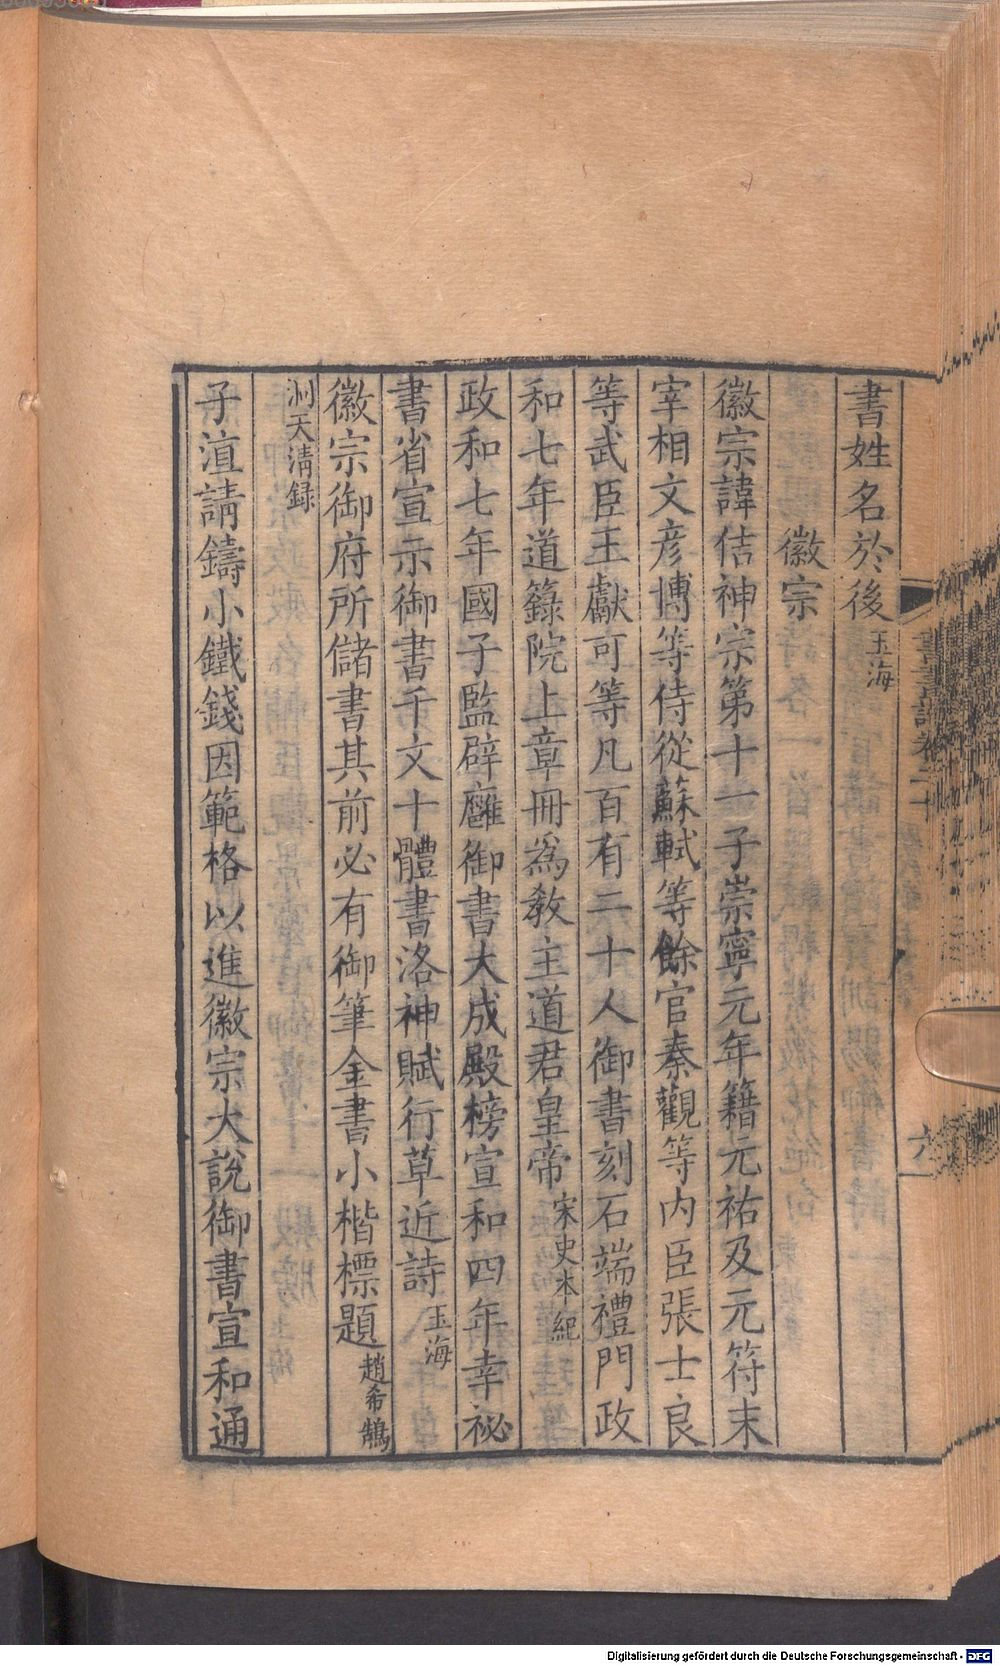 書姓名於後玉海
徽宗
徽宗諱佶神宗第十一子崇寧元年籍元祐及元符末
宰相文彦博等侍從蘇軾等餘官秦觀等内臣張士良
等武臣王獻可等凡百有二十人御書刻石端禮門政
和七年道籙院上章冊爲教主道君皇帝宋史本紀
政和七年國子監辟廱御書大成殿榜宣和四年幸祕
書省宣示御書千文十體書洛神賦行草近詩玉海
徽宗御府所儲書其前必有御筆金書小楷標題趙希鵠
洞天清録
子㴶請鑄小鐵錢因範格以進徽宗大說御書宣和通
六
Digitalisierung gefördert durch die Deutsche Forschungsgemeinschaft - DFG